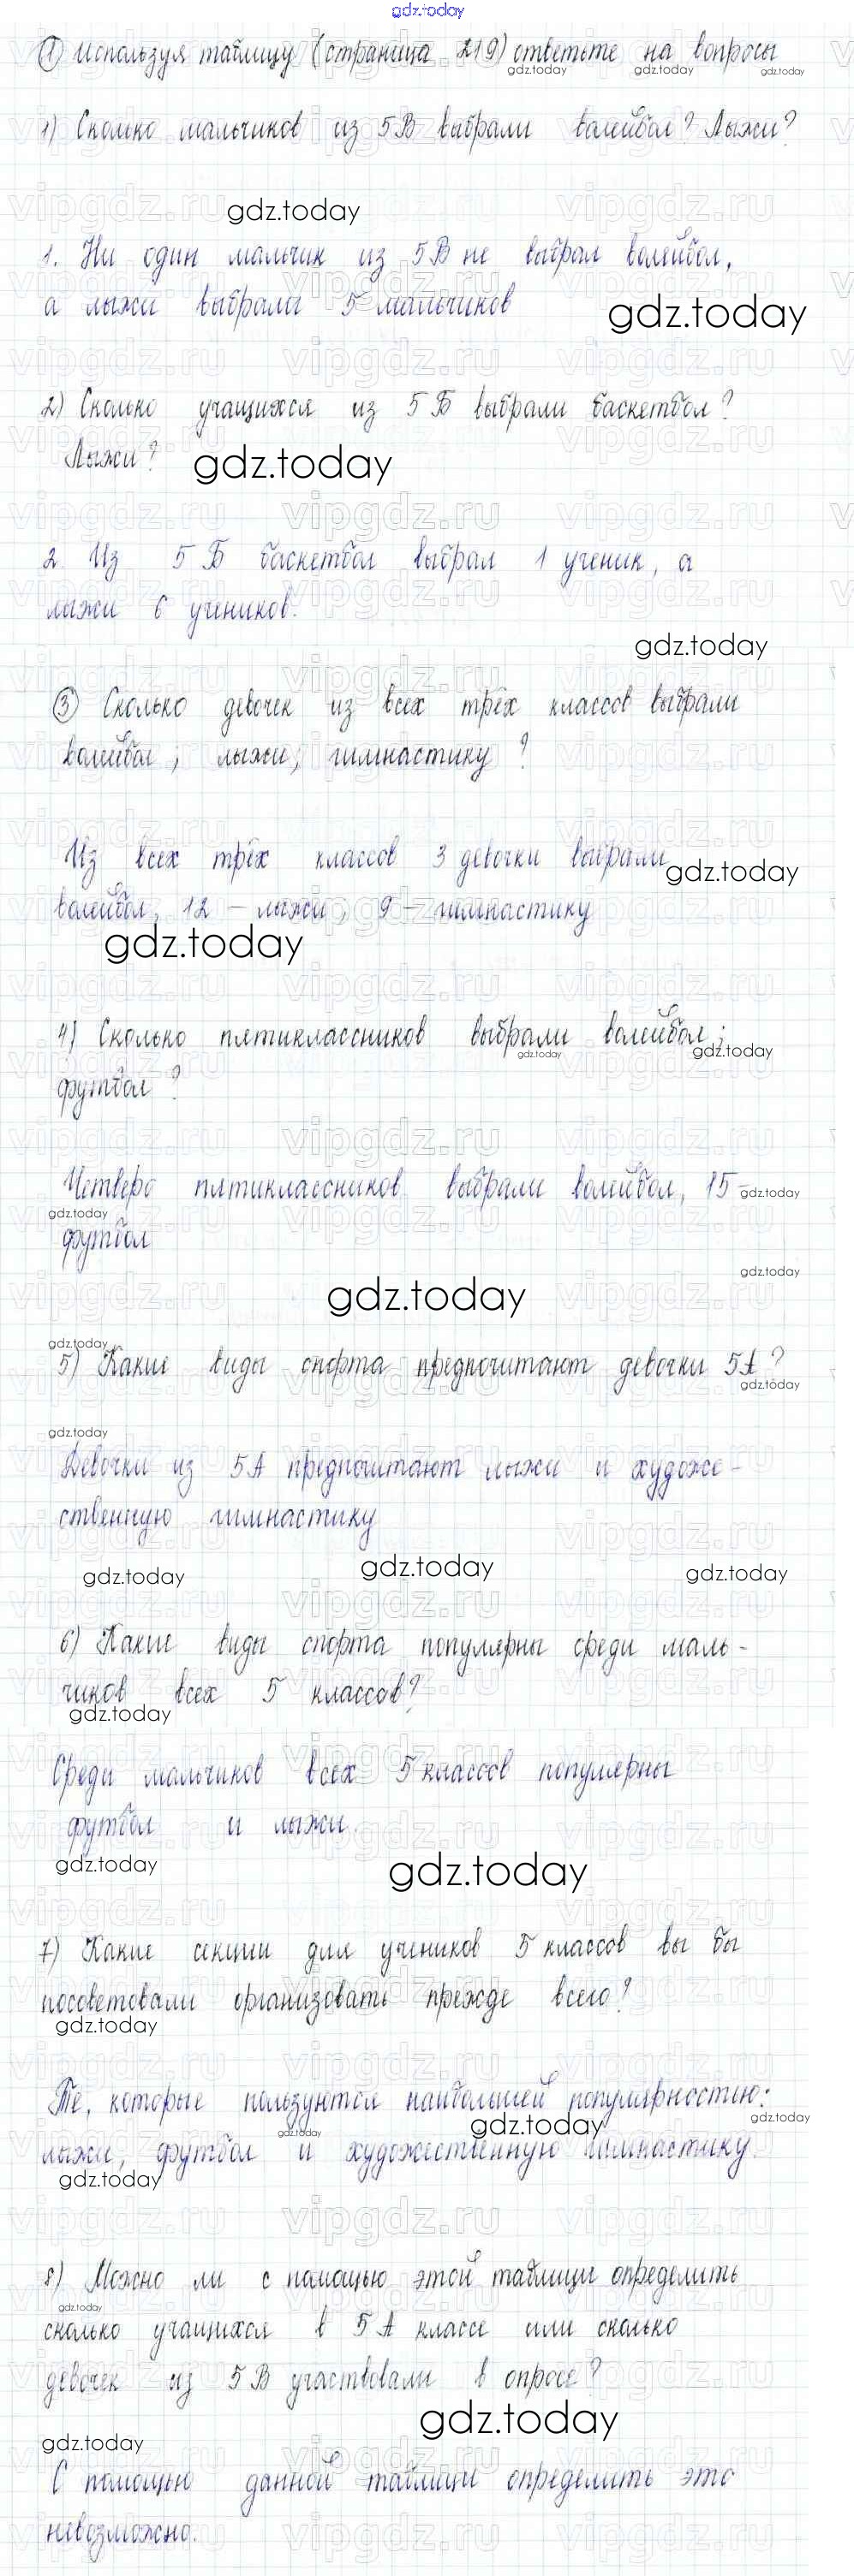 gdz.today
1 Используя таблицу (страница 219) ответьте на вопросы
gdz.today gdz.today gdz.today
1) Сколко мальчиков из 5В выбрали волейбол? Лыжи?
gdz.today
1. Ни один мальчик из 5В не выбрал волейбол,
а лыжи выбрали 5 мальчиков
gdz.today
2) Сколько учащихся из 5Б выбрали баскетбол?
Лыжи?
gdz.today
2. Из 5Б баскетбол выбрал 1 ученик, а
лыжи 6 учеников.
gdz.today
3 Сколько девочек из всех трёх классов выбрали
волейбол, лыжи, гимнастику?
Из всех трёх классов 3 девочки выбрали
gdz.today
волейбол, 12 – лыжи, 9 – гимнастику
gdz.today
4) Сколько пятиклассников выбрали волейбол;
gdz.today gdz.today
футбол?
Четверо пятиклассников выбрали волейбол, 15 –
gdz.today
gdz.today
футбол
gdz.today
gdz.today
gdz.today
5) Какие виды спорта предпочитают девочки 5А?
gdz.today
gdz.today
Девочки из 5А предпочитают лыжи и художе-
ственную гимнастику
gdz.today gdz.today gdz.today
6) Какие виды спорта популярны среди маль-
чиков всех 5 классов?
gdz.today
Среди мальчиков всех 5 классов популярны
футбол и лыжи.
gdz.today gdz.today
7) Какие секции для учеников 5 классов вы бы
посоветовали организовать прежде всего?
gdz.today
Те, которые пользуются наибольшей популярностью:
gdz.today gdz.today gdz.today
лыжи, футбол и художественную гимнастику.
gdz.today
8) Можно ли с помощью этой таблицы определить
gdz.today
сколько учащихся в 5А классе или сколько
девочек из 5В участвовали в опросе?
gdz.today
gdz.today
С помощью данной таблици определить это
невозможно.
vipgdz.ru